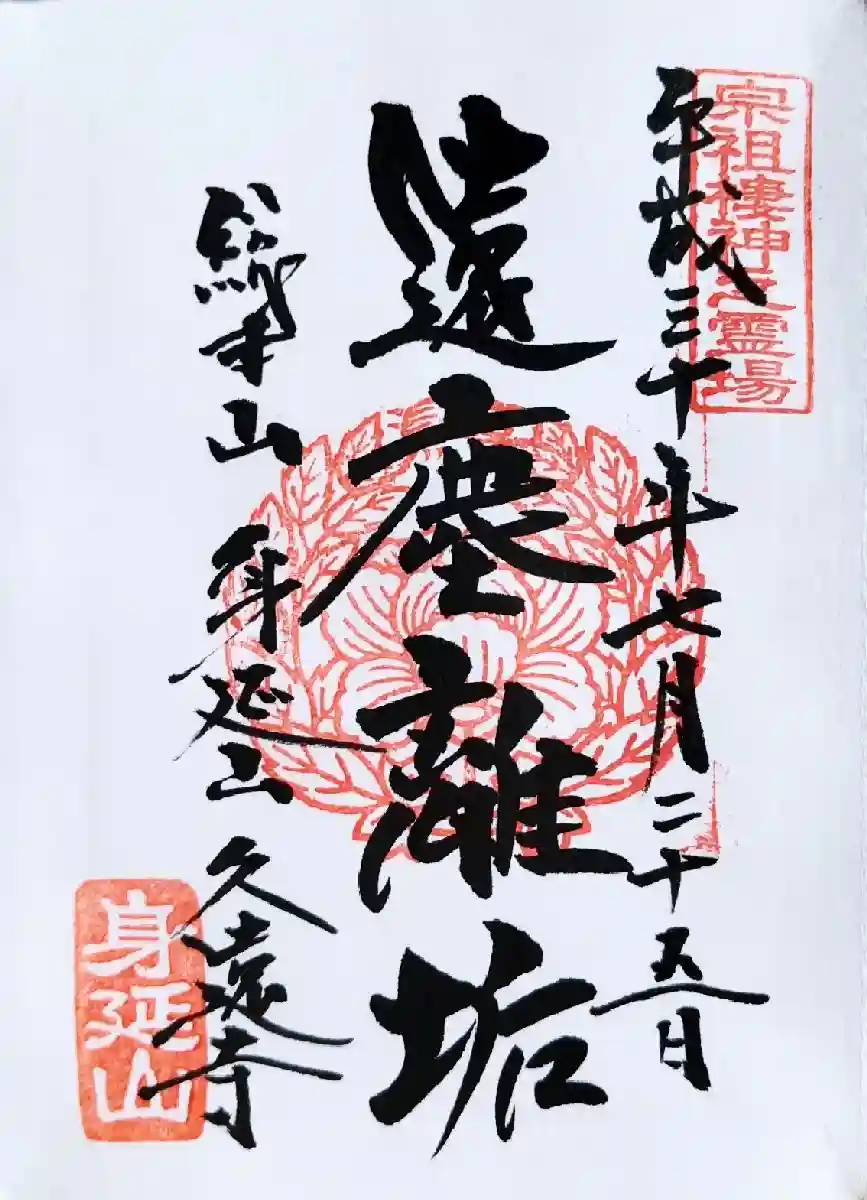 宗祖棲神之霊場
平成三十年七月二十五日
遠塵離垢
総本山 身延山 久遠寺
身延山